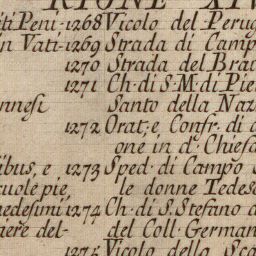 RIONE XIV
iti Peni- 1268 Vicolo del Perug
n Vati- 1269 Strada di Camp
1270 Strada del Brav
1271 Ch. di S. M. di Piet
nnesi Santo della Naz
1272 Orat. e Confr. di d
one in d. Chiesa
ibus, e 1273 Sped. di Campo S
cuole pie, le donne Tedes
nedesimi 1274 Ch. di S. Stefano d
iere del- del Coll. German
1275 Vicolo della Sca